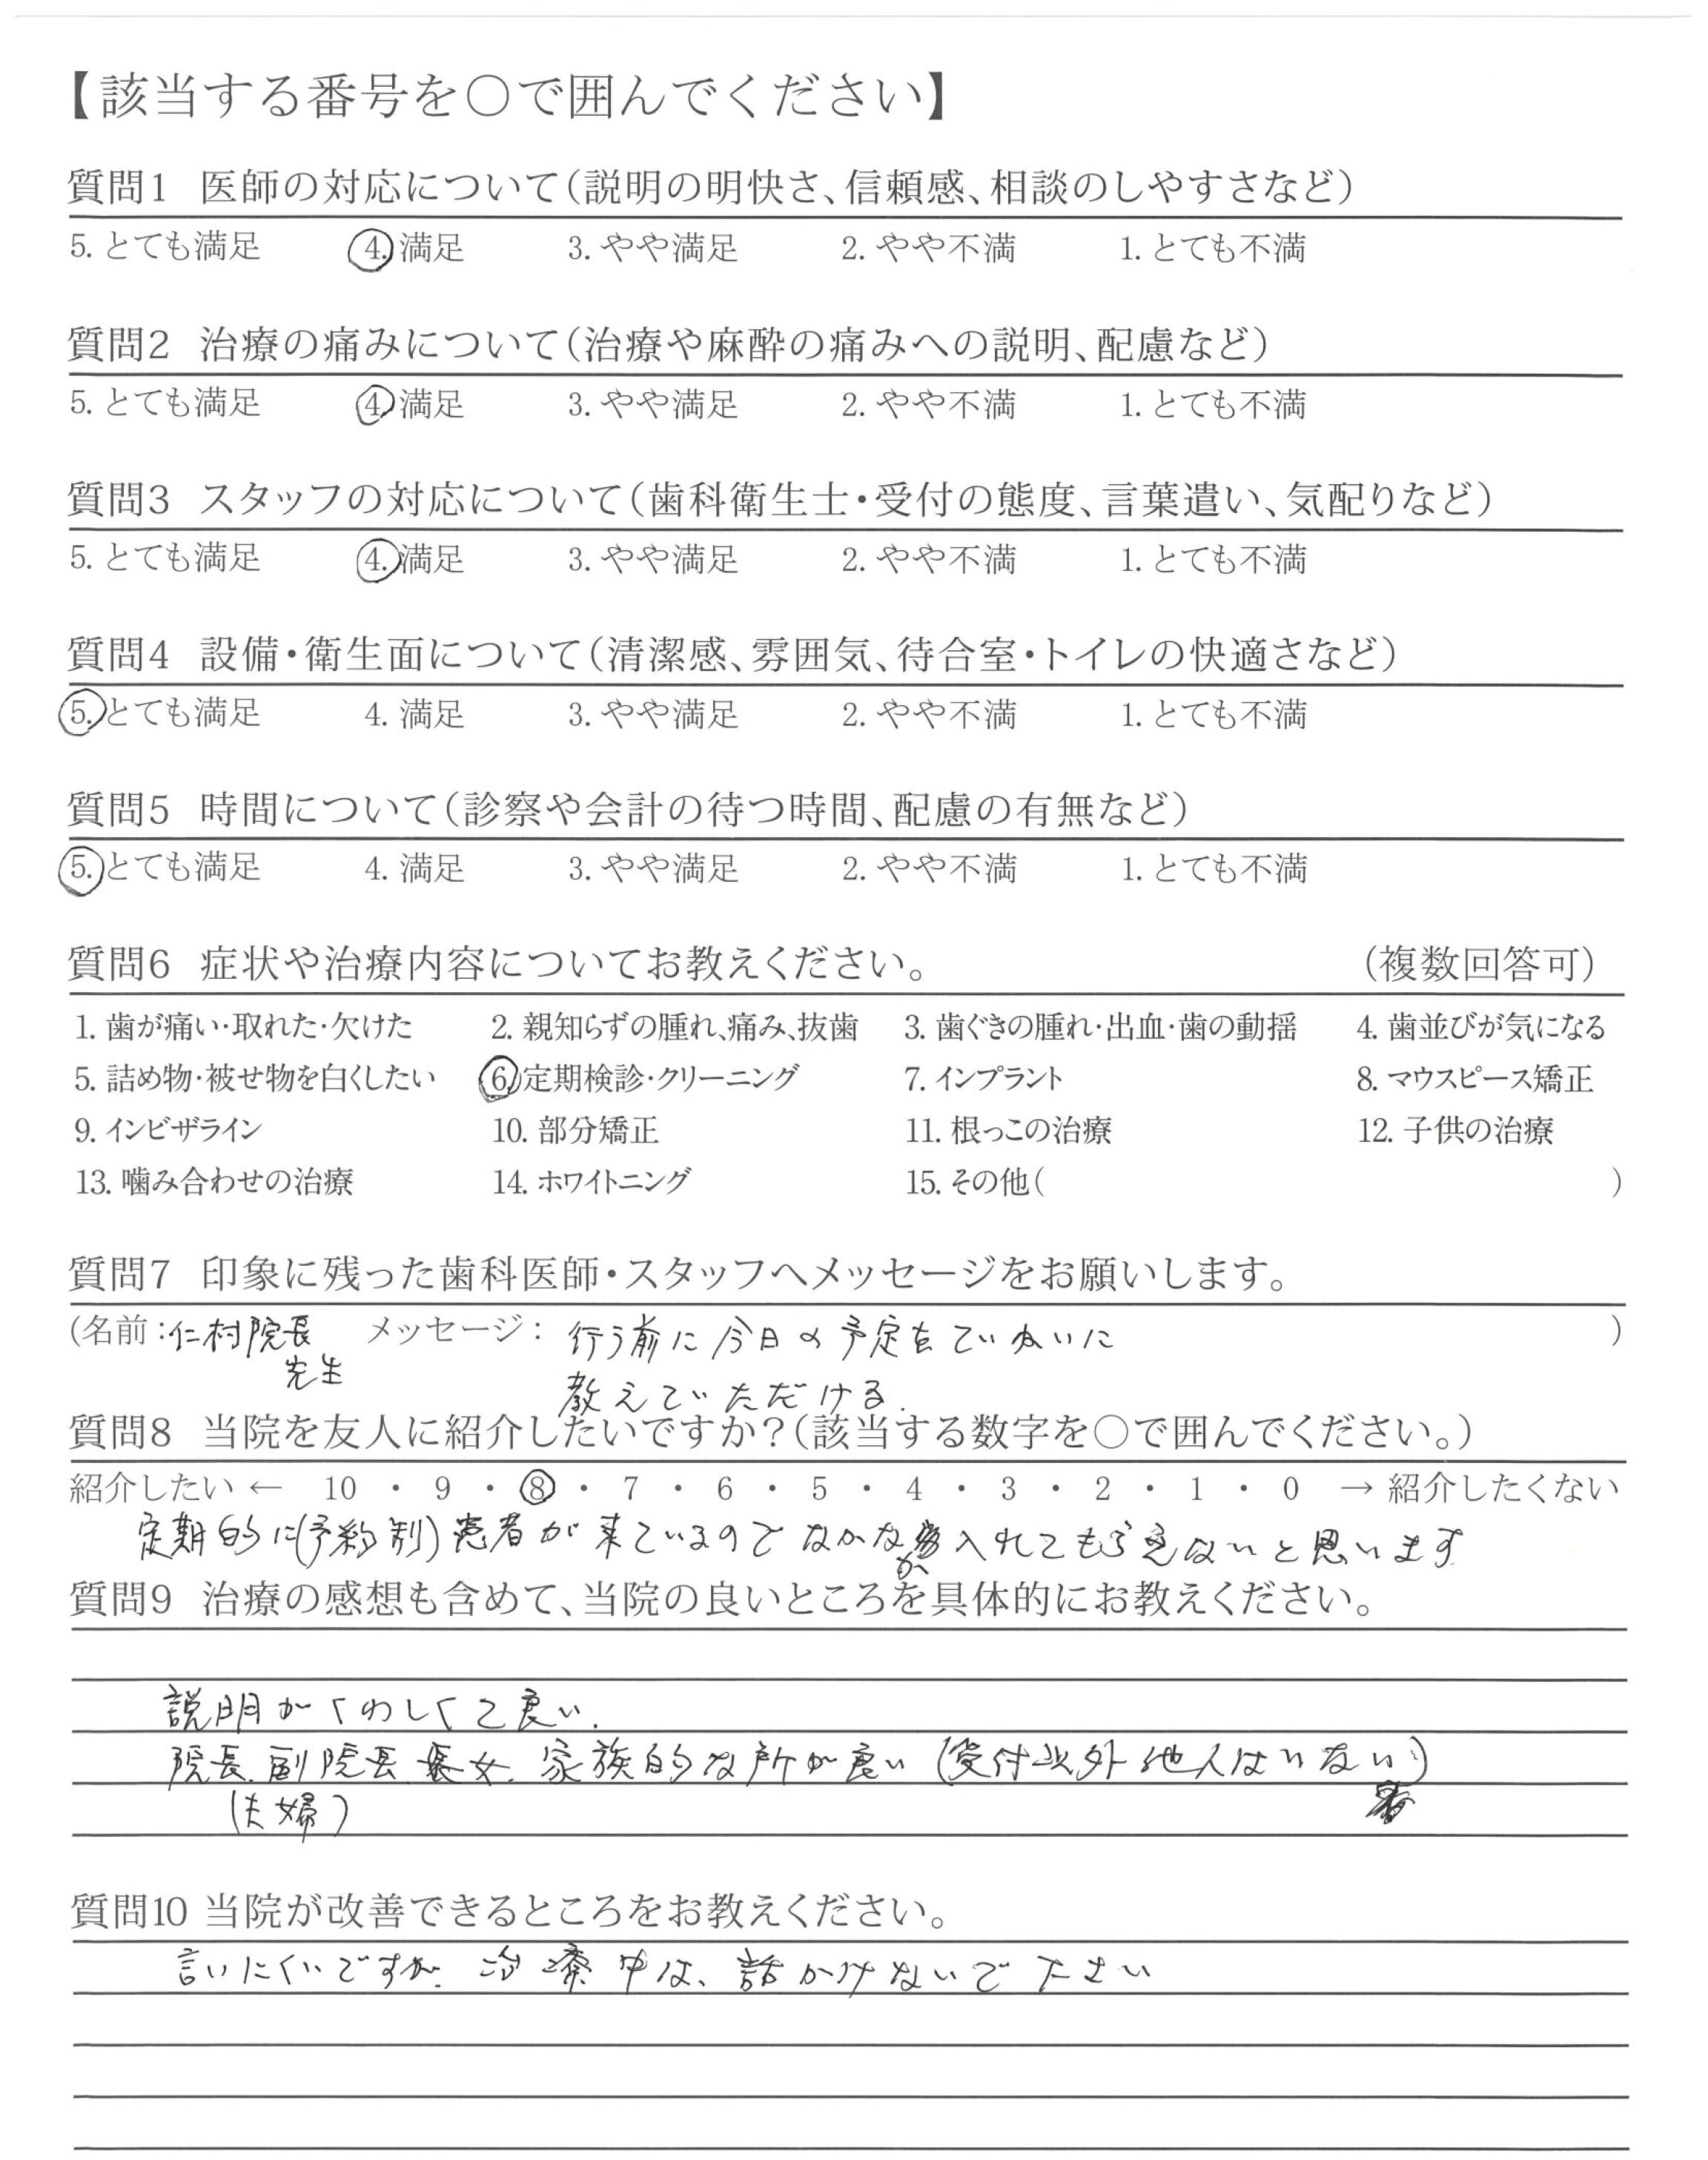 【該当する番号を○で囲んでください】
質問1 医師の対応について(説明の明快さ、信頼感、相談のしやすさなど)
5. とても満足 4. 満足 3. やや満足 2. やや不満 1. とても不満
質問2 治療の痛みについて(治療や麻酔の痛みへの説明、配慮など)
5. とても満足 4. 満足 3. やや満足 2. やや不満 1. とても不満
質問3 スタッフの対応について(歯科衛生士・受付の態度、言葉遣い、気配りなど)
5. とても満足 4. 満足 3. やや満足 2. やや不満 1. とても不満
質問4 設備・衛生面について(清潔感、雰囲気、待合室・トイレの快適さなど)
5. とても満足 4. 満足 3. やや満足 2. やや不満 1. とても不満
質問5 時間について(診察や会計の待つ時間、配慮の有無など)
5. とても満足 4. 満足 3. やや満足 2. やや不満 1. とても不満
質問6 症状や治療内容についてお教えください。 (複数回答可)
1. 歯が痛い・取れた・欠けた 2. 親知らずの腫れ、痛み、抜歯 3. 歯ぐきの腫れ・出血・歯の動揺 4. 歯並びが気になる
5. 詰め物・被せ物を白くしたい 6. 定期検診・クリーニング 7. インプラント 8. マウスピース矯正
9. インビザライン 10. 部分矯正 11. 根っこの治療 12. 子供の治療
13. 噛み合わせの治療 14. ホワイトニング 15. その他( )
質問7 印象に残った歯科医師・スタッフへメッセージをお願いします。
(名前:仁村院長 メッセージ: 行う前に今日の予定をていねいに )
先生
教えていただける.
質問8 当院を友人に紹介したいですか?(該当する数字を○で囲んでください。)
紹介したい ← 10 ・ 9 ・ 8 ・ 7 ・ 6 ・ 5 ・ 4 ・ 3 ・ 2 ・ 1 ・ 0 → 紹介したくない
定期的に(予約制)患者が来ているのでなかなか入れてもらえないと思います
質問9 治療の感想も含めて、当院の良いところを具体的にお教えください。
説明がくわしくて良い.
院長.副院長 長女.家族的な所が良い(受付以外他人はいない)
(夫婦)
質問10 当院が改善できるところをお教えください。
言いにくいですが.治療中は、話かけないで下さい